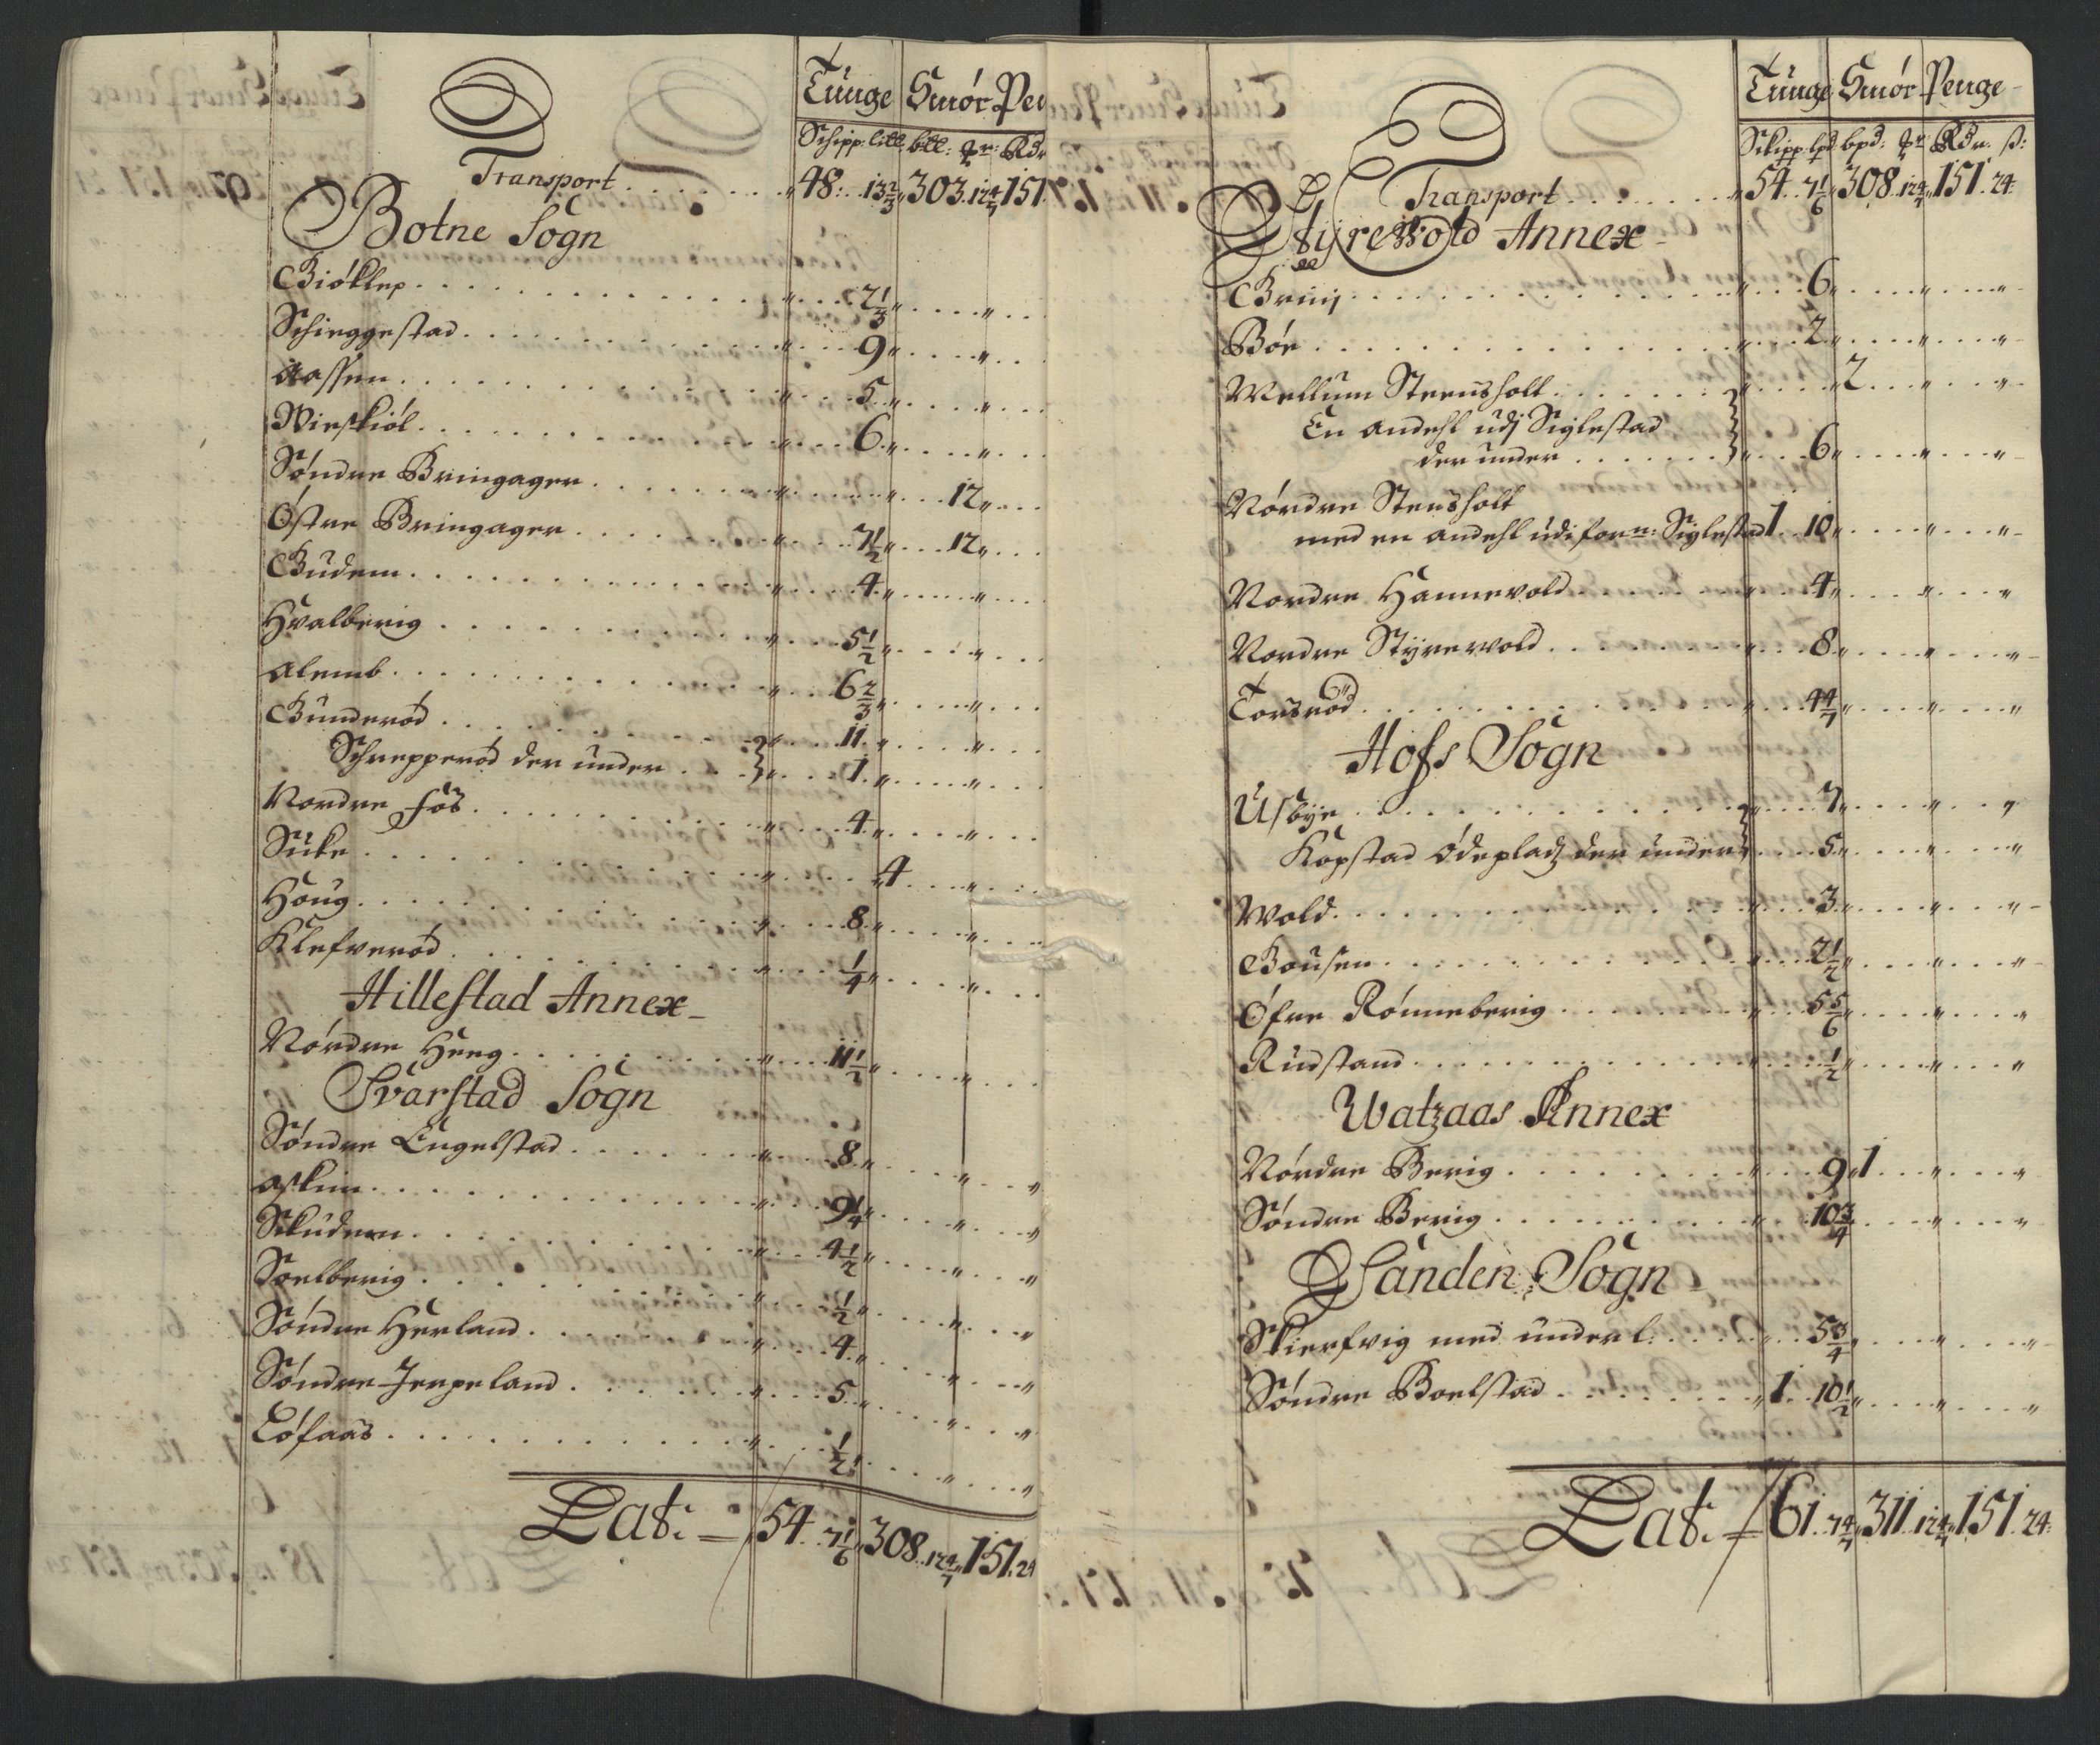 Tunge Smør Pen
Schipp: litt: btt: pr: Rdr
Transport . . . 48: 13 2/3 303. 12 4/7 151.
Botne Sogn
Biøklep . . . 2 1/3
Schieggestad . . . 9
Aassen . . . 5
Wirskiøl . . . 6
Søndre Bringager . . . 12
Østre Bringager . . . 7 1/2 . . 12
Budem . . . 4
Hvalberig . . . 5 1/2
Alemb . . . 6 2/3
Gunderød . . . 11
Schrepperød der under . . . 1
Nordre Fos . . . 4
Suke . . . 4
Houg . . . 8
Klefverød . . . 1/4
Hillestad Annex
Nordre Heeg . . . 11 1/2
Svarstad Sogn
Søndre Engelstad . . . 8
Askim . . . 9 1/4
Skuden . . . 4 1/2
Soelberig . . . 1/2
Søndre Herland . . . 4
Søndre Jerpeland . . . 5
Løfaas . . . 1/2
Lat: 54. 7 1/6 308. 12 4/7 151. 24
Tunge Smør Penge
Skipp lpd bpd: pr Rdr. ß:
Transport . . . 54. 7 1/6 308. 12 4/7 151. 24
Styrevold Annex
Bring . . . 6
Bøe . . . 2
Mellum Steensholt . . . 2
En andehl udj Siglestad
der under . . . 6
Nordre Stensholt
med en andehl udi forn: Siglestad 1. 10
Nordre Hannevold . . . 4
Nordre Styrevold . . . 8
Torsrød . . . 4 4/7
Hofs Sogn
Usbye . . . 7
Kopstad Ødepladz der under . . . 5
Wold . . . 3
Bousen . . . 2 1/2
Øfre Rønneberig . . . 5 5/6
Rudstand . . . 1/2
Watzaas Annex
Nordre Berig . . . 9 1
Søndre Berig . . . 10 3/4
Sanden Sogn
Skierfvig med underl: . . . 5 3/4
Søndre Boelstad . . . 1. 10 1/2
Lat: 61. 7 4/7 311. 12 4/7 151. 24